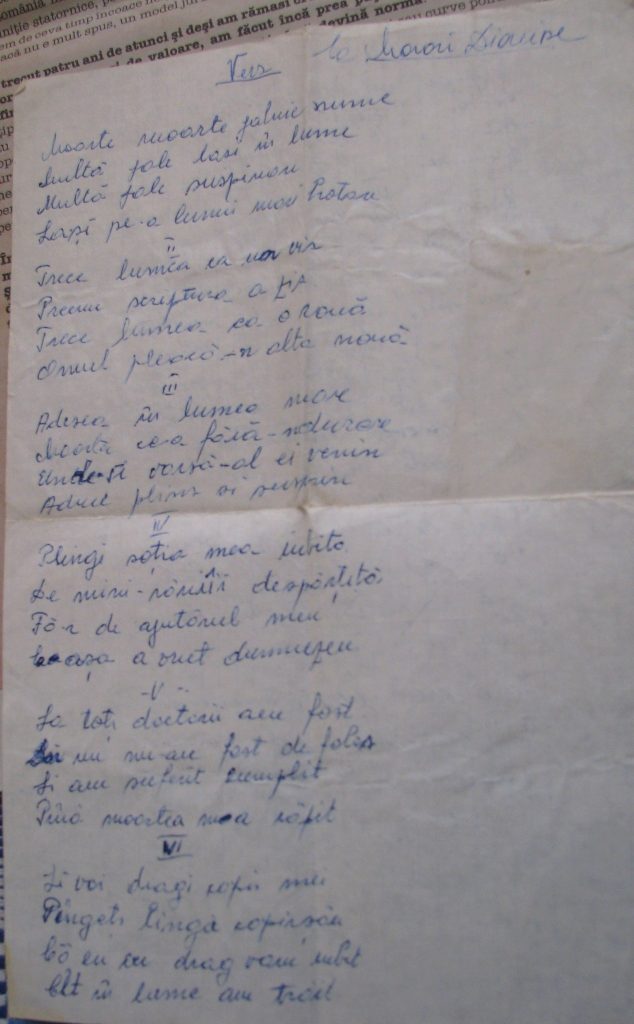 omânia în
iniție statornice, po
em de ceva timp încoace ne
acă nu e mult spus, un model jur
trecut patru ani de atunci și deși am rămas
de valoare, am făcut încă prea p
devină norma
curve
Vers la
Moarte moarte jalnic nume
Multă jale lași în lume
Multă jale suspinări
Lași pe-a lumii mari
II
Trece lumea ca un vis
Precum scriptura a zis
Trece lumea ca o rouă
Omul pleacă-n alta nouă
III
Adesea în lumea mare
Moarte cea fără-ndurare
Unde-ți varsă-al ei venin
Aduce plâns si suspin
IV
Plîngi soția mea iubita
De mini-rămîi despărțită
Fă-r de ajutorul meu
Că așa a vrut dumnezeu
-V-
La toți doctorii am fost
Și nu ne-au fost de folos
Și am suferit cumplit
Pînă moartea m-a răpit
VI
Și voi dragi copii mei
Plîngeți lîngă
Că eu cu drag vam iubit
Cît în lume am trăit